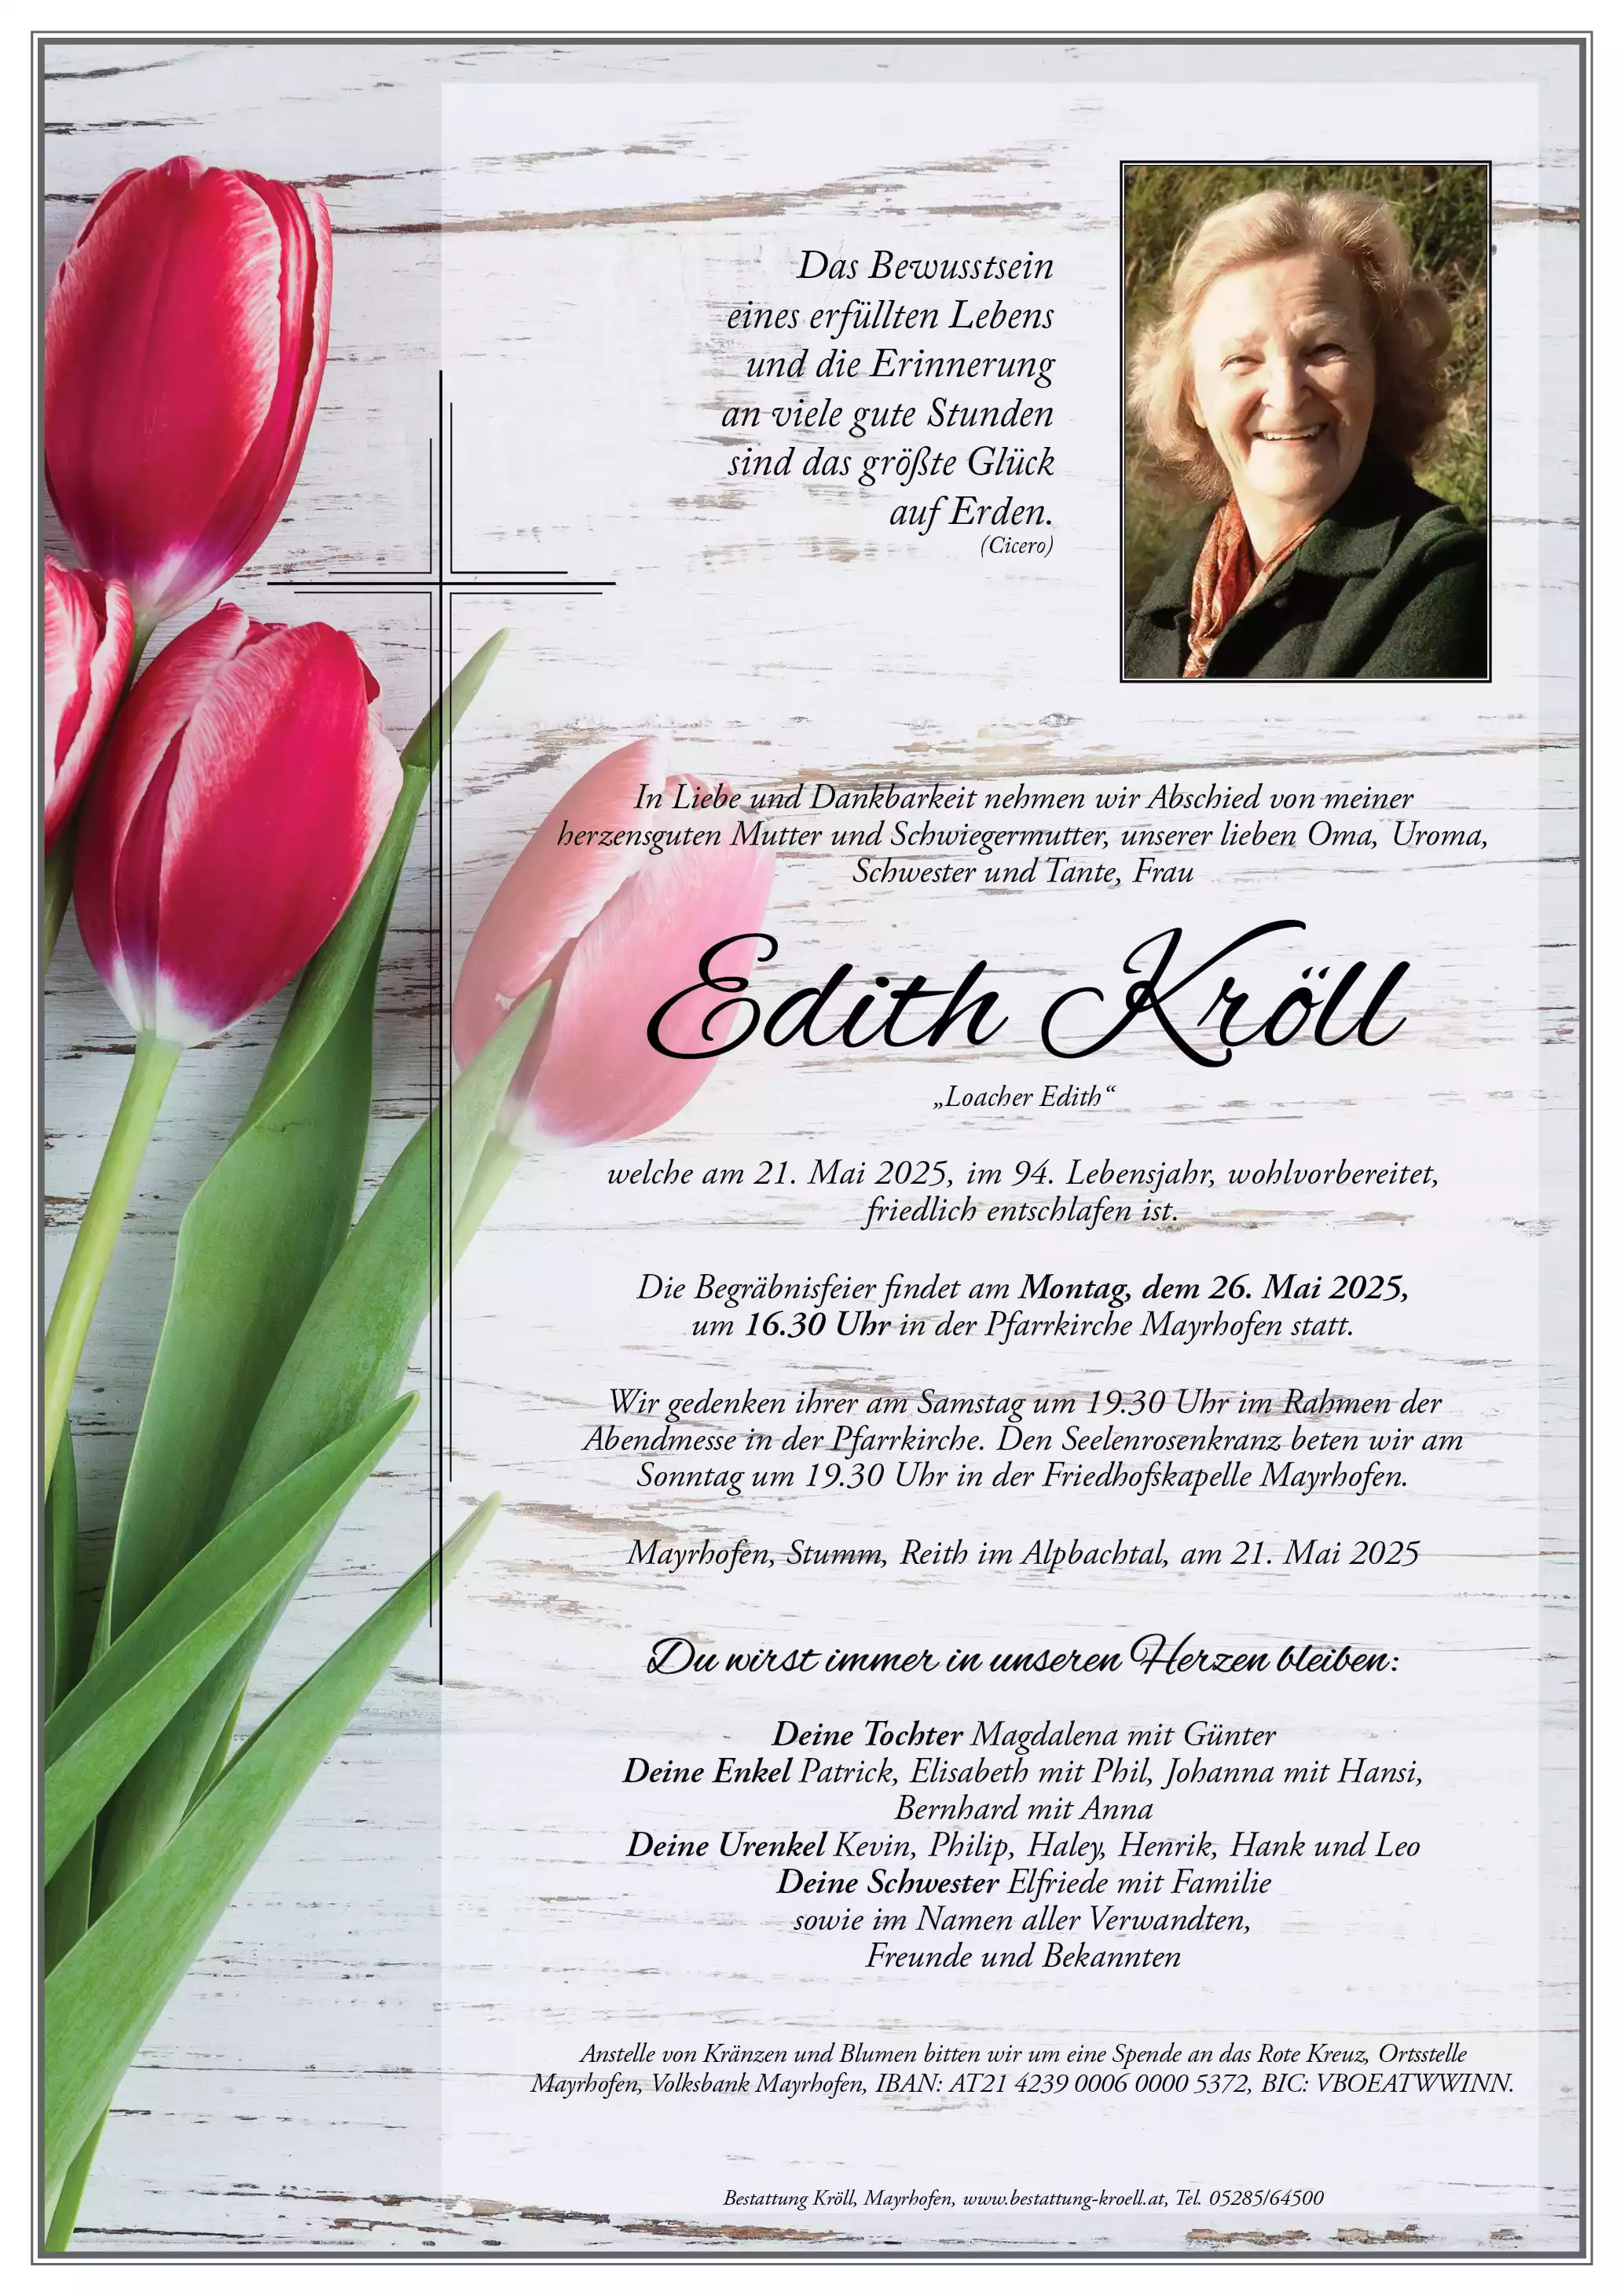 Das Bewusstsein
eines erfüllten Lebens
und die Erinnerung
an viele gute Stunden
sind das größte Glück
auf Erden.
(Cicero)
In Liebe und Dankbarkeit nehmen wir Abschied von meiner
herzensguten Mutter und Schwiegermutter, unserer lieben Oma, Uroma,
Schwester und Tante, Frau
Edith Kröll
„Loacher Edith“
welche am 21. Mai 2025, im 94. Lebensjahr, wohlvorbereitet,
friedlich entschlafen ist.
Die Begräbnisfeier findet am Montag, dem 26. Mai 2025,
um 16.30 Uhr in der Pfarrkirche Mayrhofen statt.
Wir gedenken ihrer am Samstag um 19.30 Uhr im Rahmen der
Abendmesse in der Pfarrkirche. Den Seelenrosenkranz beten wir am
Sonntag um 19.30 Uhr in der Friedhofskapelle Mayrhofen.
Mayrhofen, Stumm, Reith im Alpbachtal, am 21. Mai 2025
Du wirst immer in unseren Herzen bleiben:
Deine Tochter Magdalena mit Günter
Deine Enkel Patrick, Elisabeth mit Phil, Johanna mit Hansi,
Bernhard mit Anna
Deine Urenkel Kevin, Philip, Haley, Henrik, Hank und Leo
Deine Schwester Elfriede mit Familie
sowie im Namen aller Verwandten,
Freunde und Bekannten
Anstelle von Kränzen und Blumen bitten wir um eine Spende an das Rote Kreuz, Ortsstelle
Mayrhofen, Volksbank Mayrhofen, IBAN: AT21 4239 0006 0000 5372, BIC: VBOEATWWINN.
Bestattung Kröll, Mayrhofen, www.bestattung-kroell.at, Tel. 05285/64500